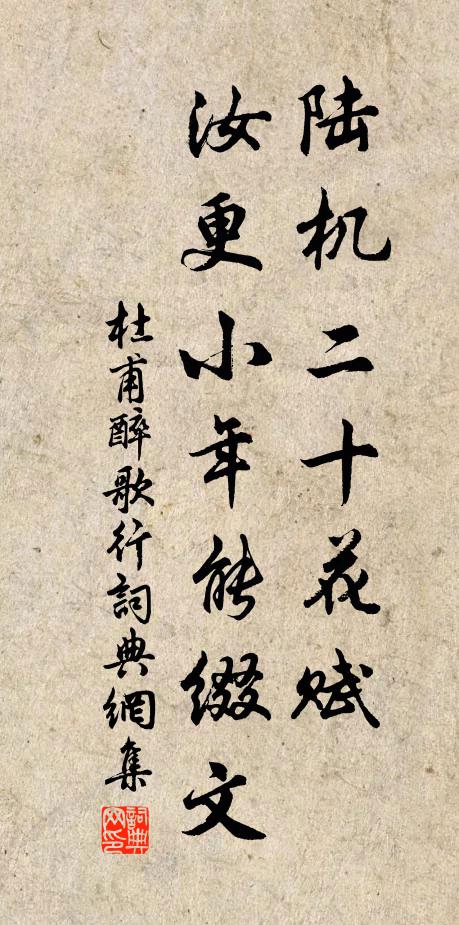 陆机二十花赋
汝更小年能缀文
杜甫醉歌行詞典網集
詞典网印